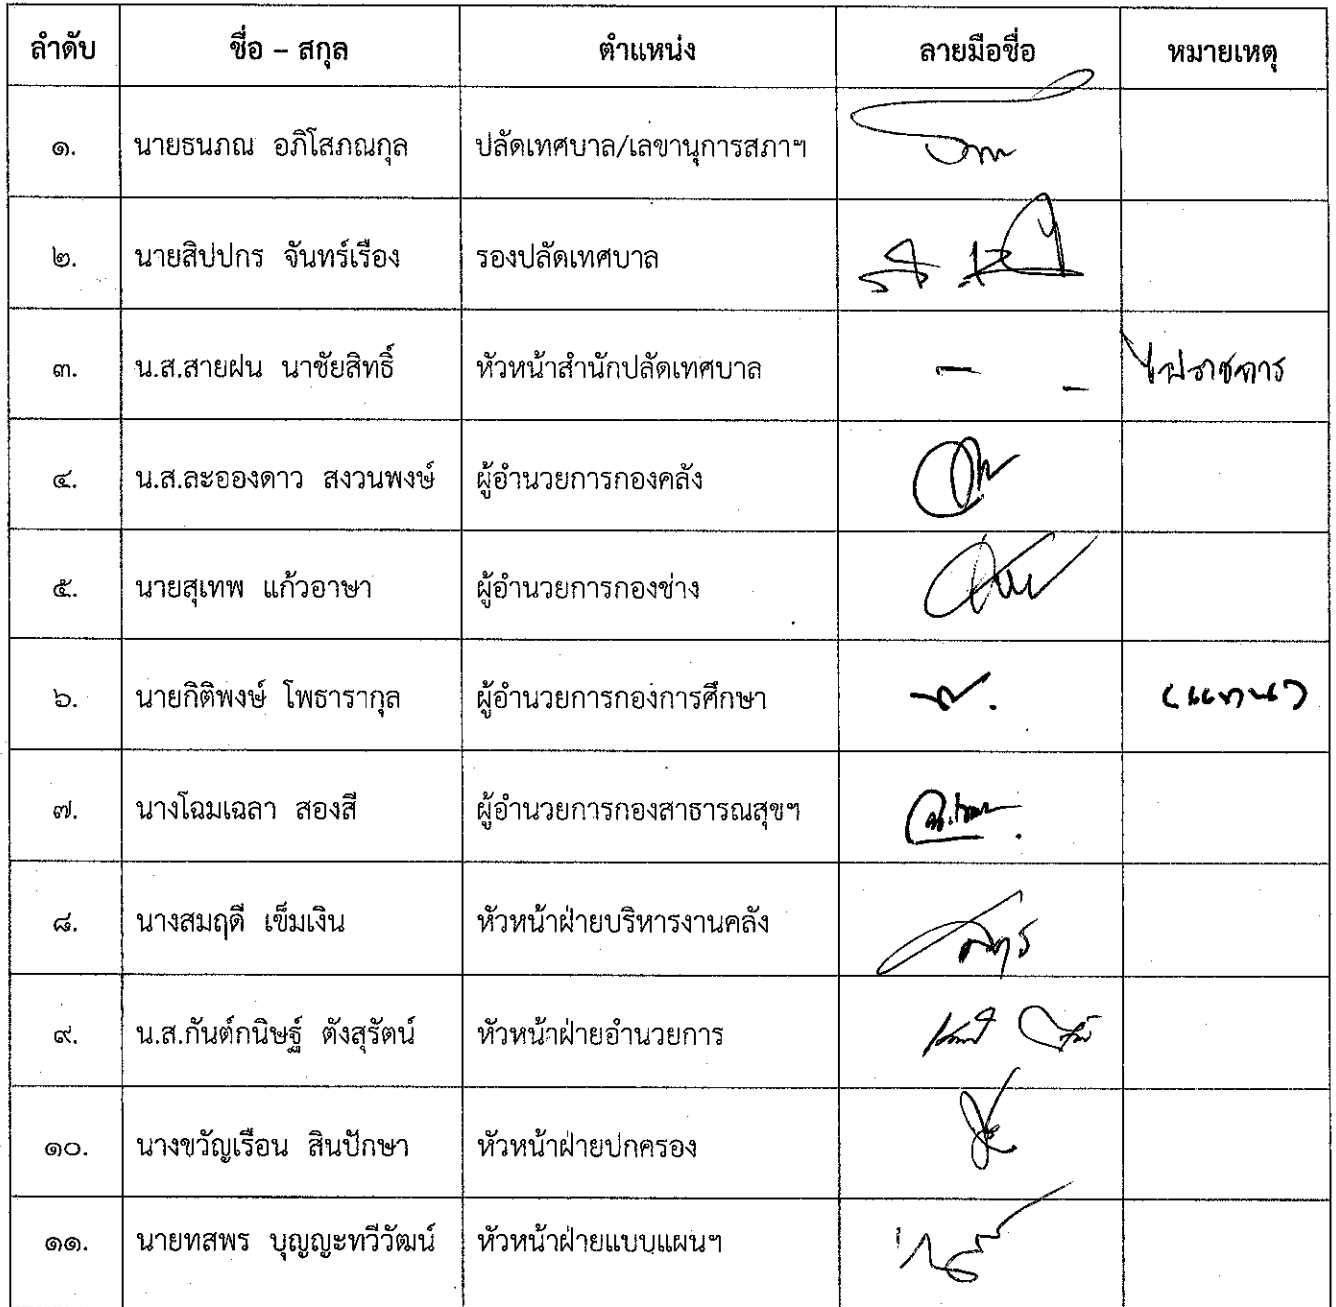 ลำดับ ชื่อ – สกุล ตำแหน่ง ลายมือชื่อ หมายเหตุ
๑. นายธนภณ อภิโสภณกุล ปลัดเทศบาล/เลขานุการสภาฯ
๒. นายสิปปกร จันทร์เรือง รองปลัดเทศบาล
๓. น.ส.สายฝน นาชัยสิทธิ์ หัวหน้าสำนักปลัดเทศบาล – – ไปราชการ
๔. น.ส.ละอองดาว สงวนพงษ์ ผู้อำนวยการกองคลัง
๕. นายสุเทพ แก้วอาษา ผู้อำนวยการกองช่าง
๖. นายกิติพงษ์ โพธารากุล ผู้อำนวยการกองการศึกษา (แทน)
๗. นางโฉมเฉลา สองสี ผู้อำนวยการกองสาธารณสุขฯ
๘. นางสมฤดี เข็มเงิน หัวหน้าฝ่ายบริหารงานคลัง
๙. น.ส.กันต์กนิษฐ์ ตังสุรัตน์ หัวหน้าฝ่ายอำนวยการ
๑๐. นางขวัญเรือน สินปักษา หัวหน้าฝ่ายปกครอง
๑๑. นายทสพร บุญญะทวีวัฒน์ หัวหน้าฝ่ายแบบแผนฯ